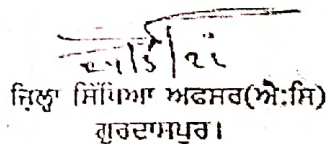 ਜ਼ਿਲ੍ਹਾ ਸਿੱਖਿਆ ਅਫਸਰ(ਐ:ਸਿ)
ਗੁਰਦਾਸਪੁਰ।